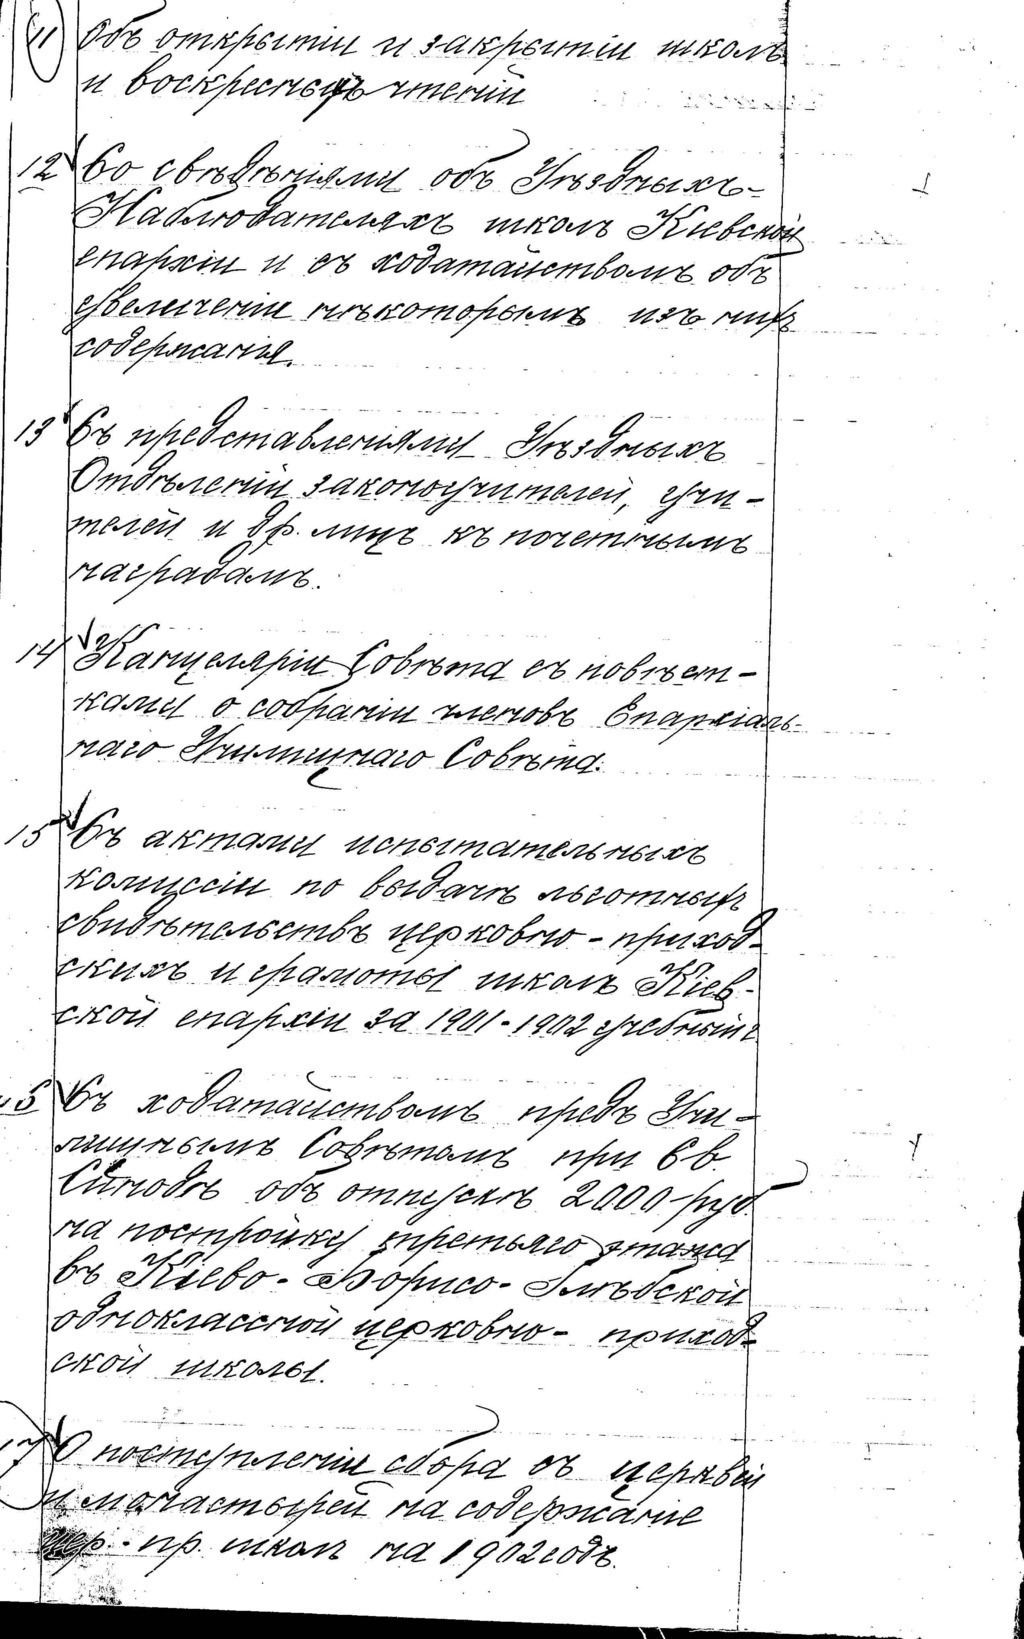 11 Объ открытіи и закрытіи школъ
и воскресныхъ чтеній
12 Со свѣдѣніями объ Уѣздныхъ-
Наблюдателяхъ школъ Кіевской
епархіи и съ ходатайствомъ объ
увеличеніи нѣкоторымъ изъ нихъ
содержанія.
13 Съ представленіями Уѣздныхъ
Отдѣленій законоучителей, учи-
телей и др. лицъ къ почетнымъ
наградамъ.
14 Канцеляріи Совѣта съ повѣст-
ками о собраніи членовъ Епархіаль-
наго Училищнаго Совѣта.
15 Съ актами испытательныхъ
комиссій по выдачѣ льготныхъ
свидѣтельствъ церковно-приход-
скихъ и грамоты школъ Кіев-
ской епархіи за 1901-1902 учебный г.
Съ ходатайствомъ предъ Учи-
лищнымъ Совѣтомъ при Св.
Синодѣ объ отпускѣ 2000 руб.
на постройку третьяго этажа
въ Кіево-Борисо-Глѣбской
одноклассной церковно-приход-
ской школы.
17 О поступленіи сбора съ церквей
и монастырей на содержаніе
цер.-пр. школъ на 1902 годъ.